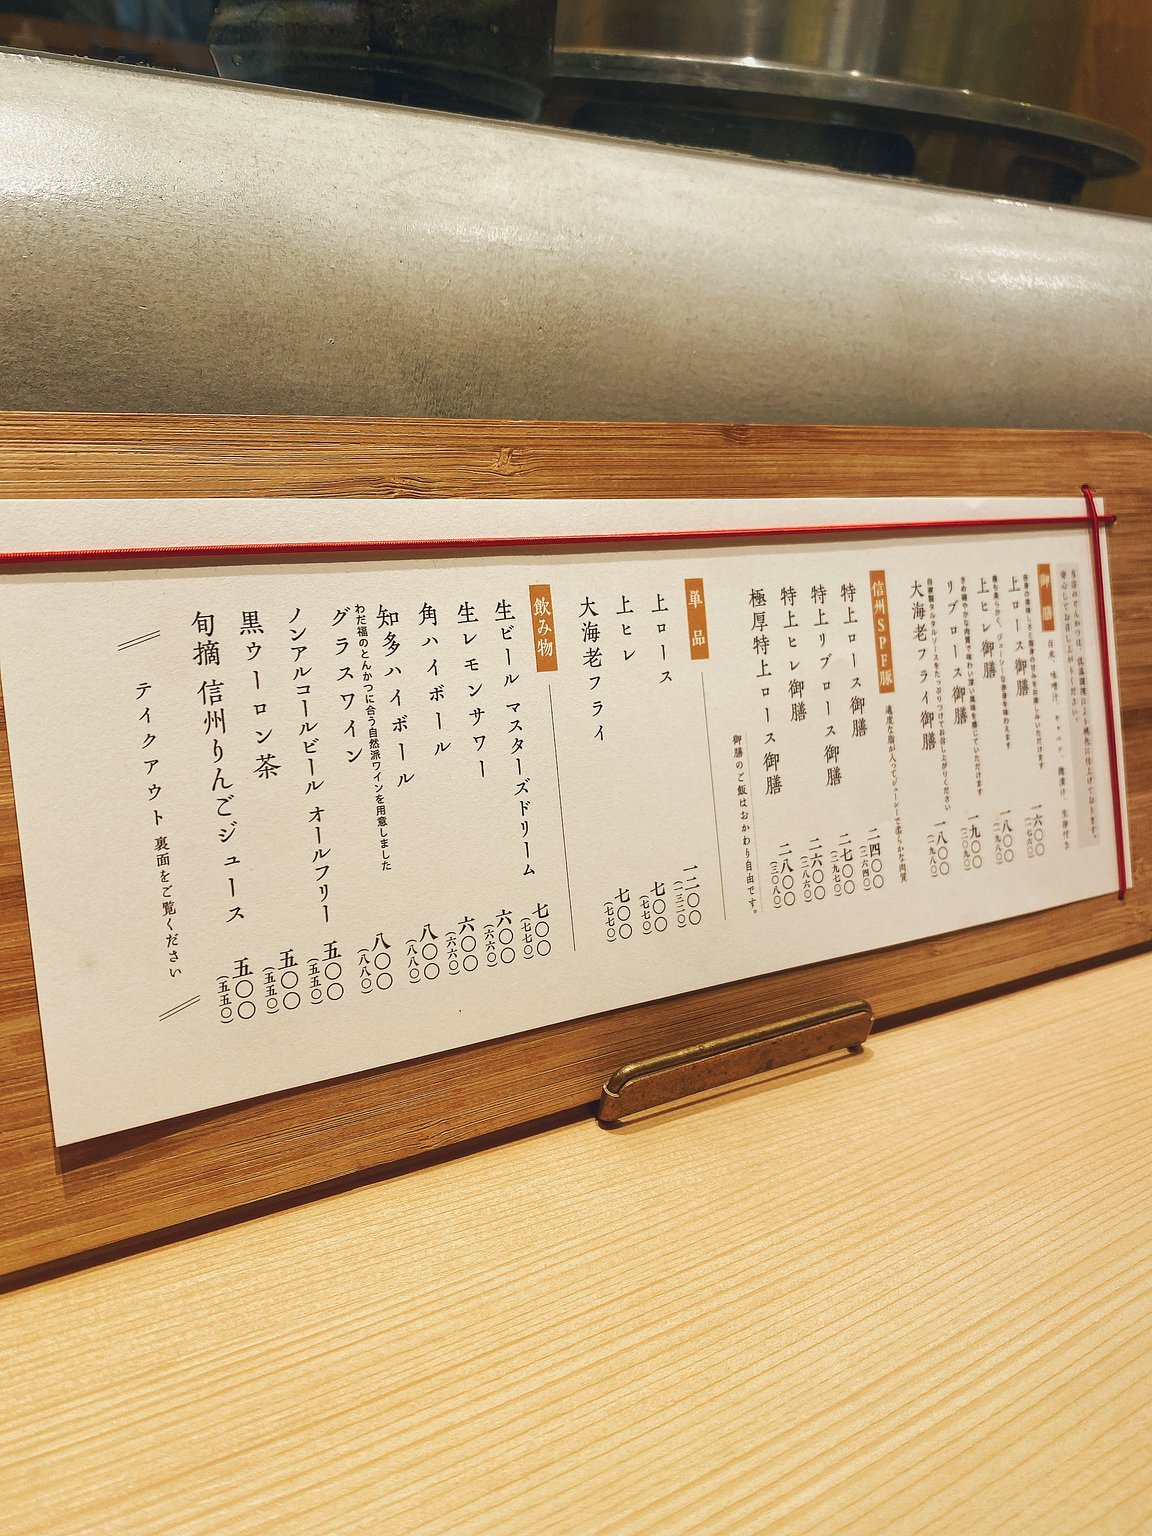 当店のとんかつは、低温調理により桃色に仕上げております。
安心してお召し上がりください。
御膳
白米、味噌汁、キャベツ、漬け、生卵付き
上ロース御膳
一六〇〇
(一七六〇)
赤身の美味しさと脂身の甘みをお楽しみいただけます
上ヒレ御膳
一八〇〇
(一九八〇)
最も柔らかく、ジューシーな赤身を味わえます
リブロース御膳
一九〇〇
(二〇九〇)
きめ細やかな肉質で味わい深い風味を感じていただけます
大海老フライ御膳
一八〇〇
(一九八〇)
自家製タルタルソースをたっぷりつけてお召し上がりください
信州SPF豚
適度な脂が入ってジューシーで柔らかな肉質
特上ロース御膳
二四〇〇
(二六四〇)
特上リブロース御膳
二七〇〇
(二九七〇)
特上ヒレ御膳
二六〇〇
(二八六〇)
極厚特上ロース御膳
二八〇〇
(三〇八〇)
御膳のご飯はおかわり自由です。
単品
上ロース
一二〇〇
(一三二〇)
上ヒレ
七〇〇
(七七〇)
大海老フライ
七〇〇
(七七〇)
飲み物
生ビール マスターズドリーム
七〇〇
(七七〇)
生レモンサワー
六〇〇
(六六〇)
角ハイボール
六〇〇
(六六〇)
知多ハイボール
八〇〇
(八八〇)
わだ福のとんかつに合う自然派ワインを用意しました
グラスワイン
八〇〇
(八八〇)
ノンアルコールビール オールフリー
五〇〇
(五五〇)
黒ウーロン茶
五〇〇
(五五〇)
旬摘 信州りんごジュース
五〇〇
(五五〇)
テイクアウト 裏面をご覧ください